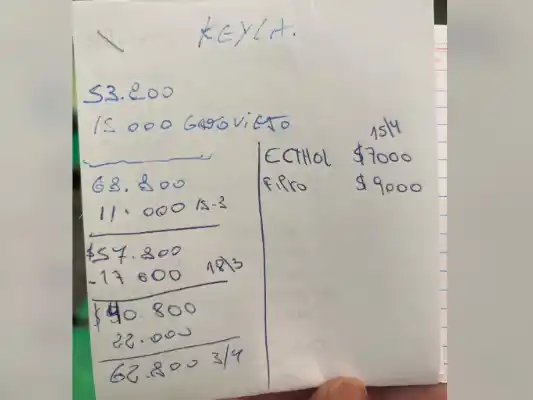 KEYLA.
53.800
15.000 GATO VIEJO
68.800
11.000 15-3
$57.800
-17.000 18\3
$40.800
22.000
62.800 3/4
15/4
ECTHOL $7000
F.Pro $9000